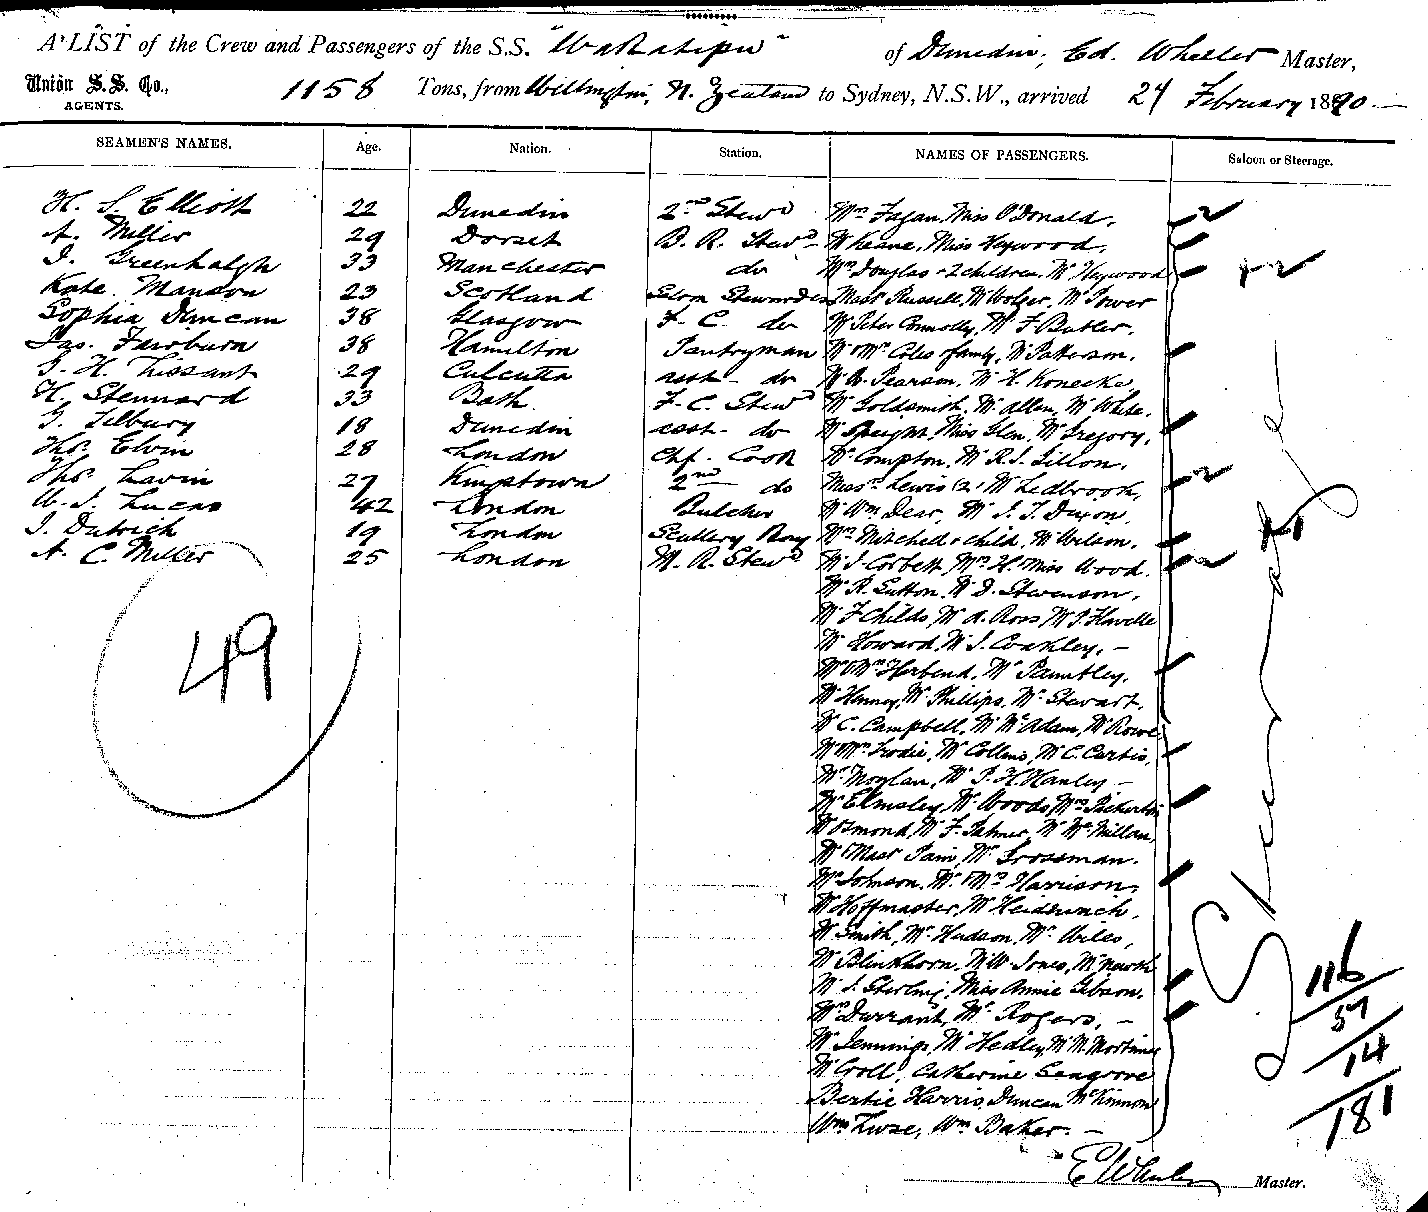 A LIST of the Crew and Passengers of the S.S. "Wakatipu" of Dunedin, Ed. Wheeler Master,
Union S.S. Co., AGENTS. 1158 Tons, from Wellington, N. Zealand to Sydney, N.S.W., arrived 24 February 1890
SEAMEN'S NAMES. Age. Nation. Station. NAMES OF PASSENGERS. Saloon or Steerage.
H. S. Elliott 22 Dunedin 2nd Stewd Mrs Fagan, Miss O'Donald,
A. Miller 29 Dorset B. R. Stewd Mr Keane, Miss Heywood,
I. Greenhalgh 33 Manchester do Mrs Douglas + 2 children, Mr Heywood
Kate Manson 23 Scotland Saloon Stewardess Mast Russell, Mr Wolger, Mr Power
Sophia Duncan 38 Glasgow F. C. do Mr Peter Connolly, Mr F Butler,
Jas. Fairburn 38 Hamilton Pantryman Mr & Mrs Coles family, Mr Patterson,
T. H. Tissant 29 Culcutta asst do Mr W. Pearson, Mr H. Konecke,
H. Stennard 33 Bath F. C. Stewd Mr Goldsmith, Mr Allen, Mr White,
G. Tilbury 18 Dunedin asst do Mr Speight, Miss Glen, Mr Gregory,
Thos. Elvin 28 London Chf. Cook Mr Compton, Mr R. J. Dillon,
Thos Lavin 27 Kingstown 2nd do Mast Lewis (2), Mr Ledbrook,
W. J. Lucas 42 London Butcher Mr Wm Dear, Mr J. T. Dixon,
J. Dutrich 19 London Scullery Boy Mrs Mitchell + child, Mr Wilson,
A. C. Miller 25 London M. R. Stewd Mr J Corbett, Mrs H & Miss Wood.
Mr R. Sutton, Mr D. Stevenson,
Mr F Childs, Mr A. Ross, Mr J. Havelle
Mr Howard, Mr J. Coakley,
Mr & Mrs Herbend, Mr Pambley,
Mr Henney, Mr Phillips, Mr Stewart,
Mr C. Campbell, Mr McAdam, Mr Rowe
Mr & Mrs Brodie, Mr Collins, Mr C. Curtis,
Mr Moylan, Mr P. H. Hanley
Mr Elmsley, Mr Woods, Mrs Pickerton
Mr Osmond, Mr F. Palmer, Mr McMillan,
Mr & Mast Pain, Mr Grossman.
Mr Johnson, Mr & Mrs Harrison,
Mr Hoffmaster, Mr Heidrinch,
Mr Smith, Mr Hudson, Mr Wiles,
Mr Blinkhorn, Mr W. Jones, Mr Newth
Mr J. Sterling, Miss Annie Gibson,
Mrs Durrant, Mr Rogers,
Mr Jennings, Mr Hedley, Mr M. Mortimer
Mr Croll, Catherine Seagrove
Bertie Harris, Duncan McKinnon
Wm Luse, Wm Baker.
49
Steerage
116
51
14
181
E Wheeler Master.